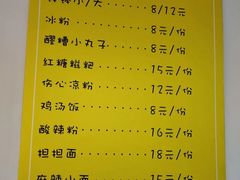 小/大 ········ 8/12元
冰粉 ············ 8元/份
醪糟小丸子 ····· 8元/份
红糖糍粑 ······ 15元/份
伤心凉粉 ······ 12元/份
鸡汤饭 ········· 8元/份
酸辣粉 ········ 16元/份
担担面 ········ 18元/份
麻辣小面 ······ 15元/份